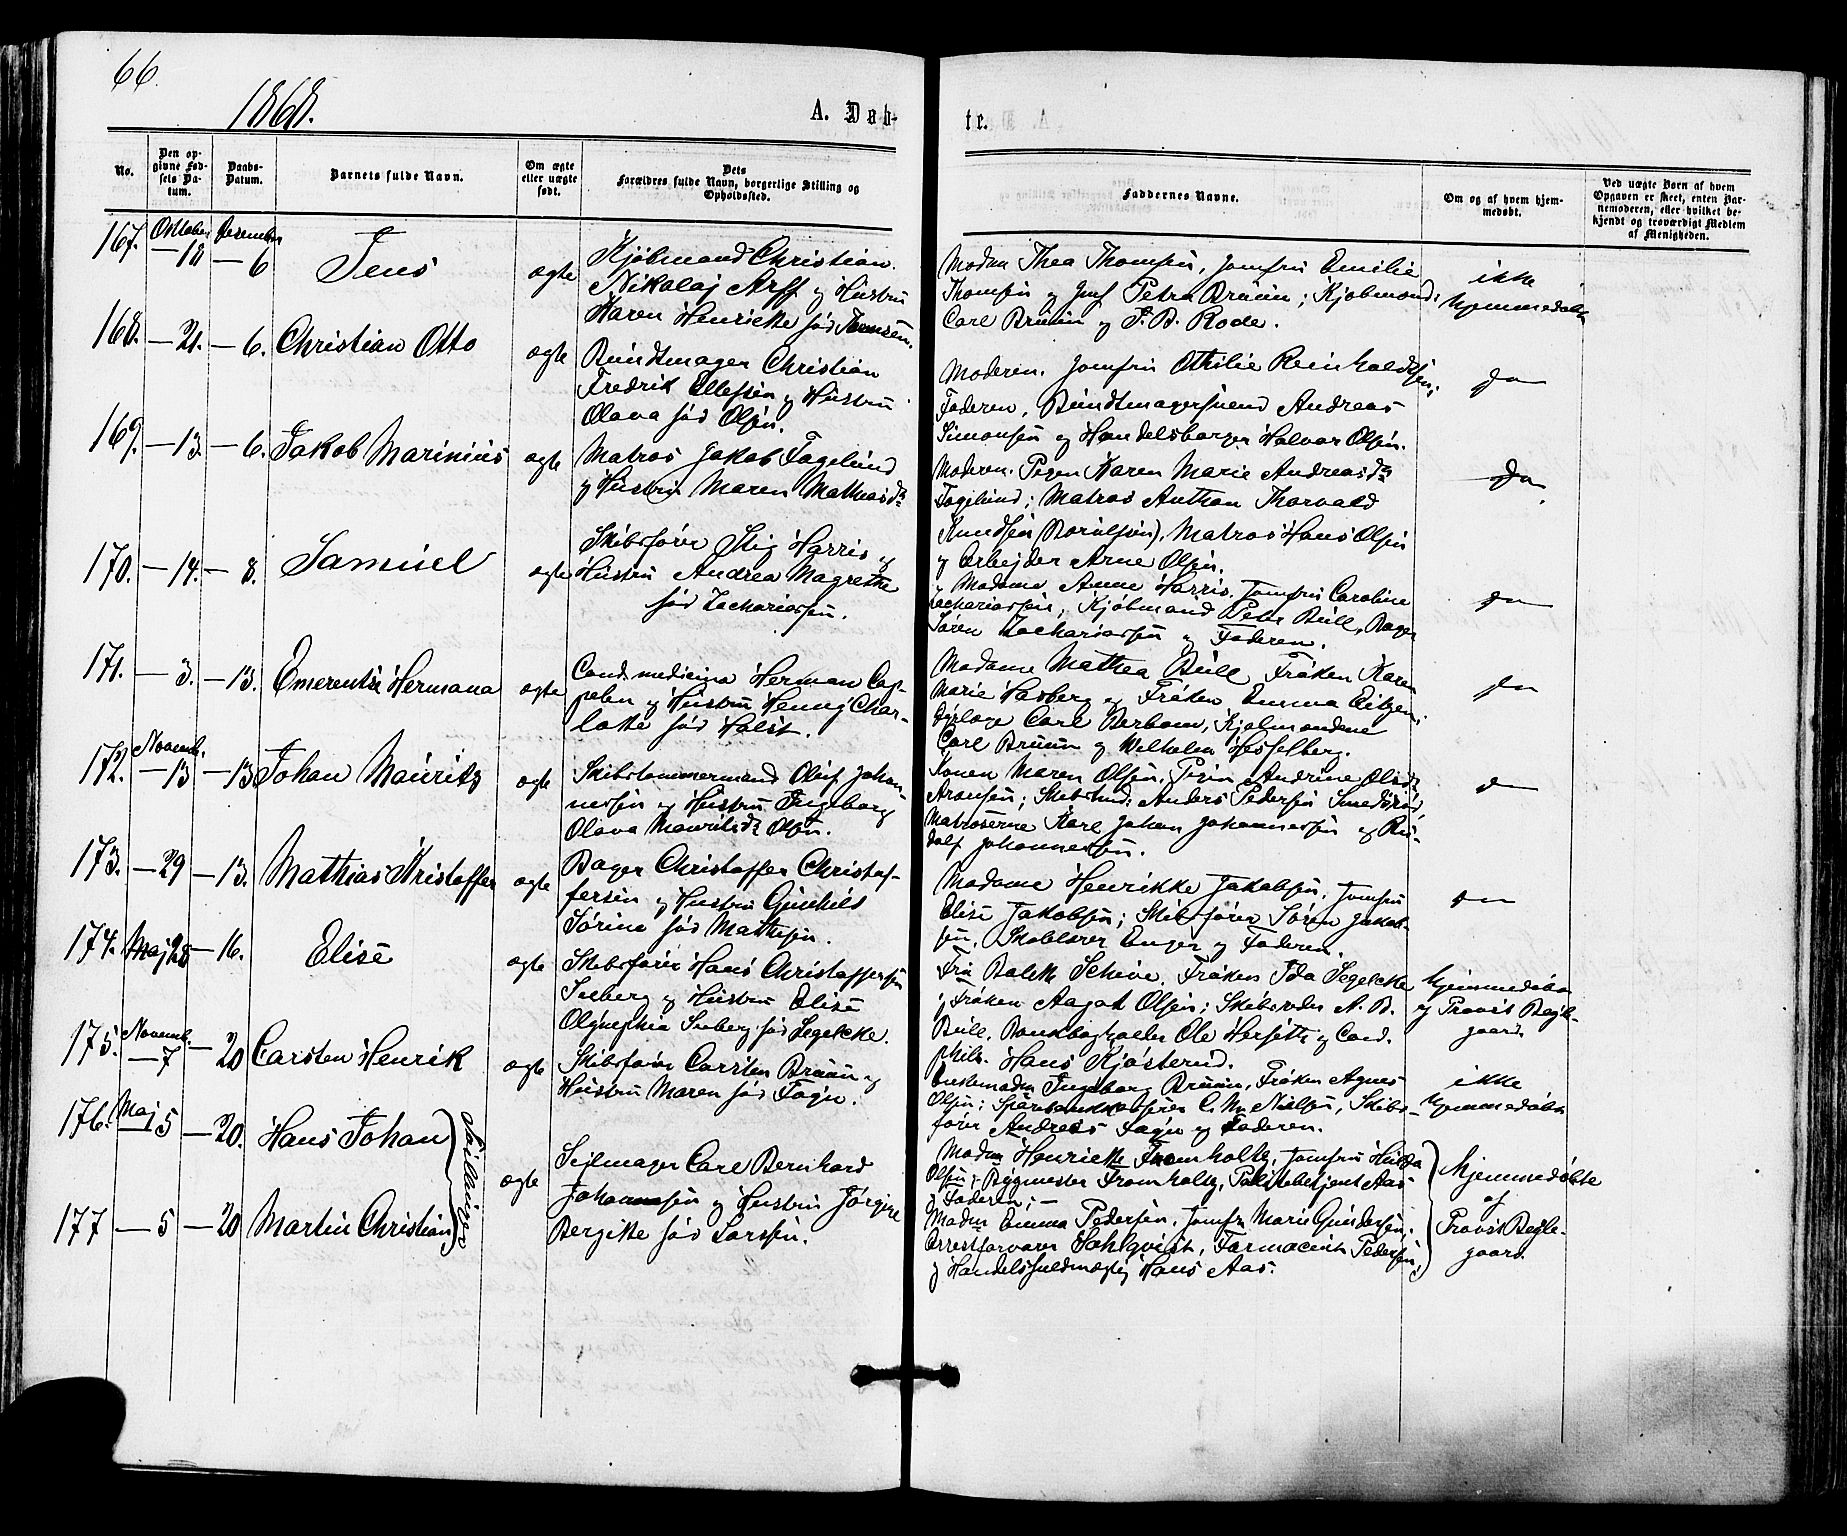 66.
1868.
A. Døb-
te.
No.
Den op-
givne Fød-
sels Da-
tum.
Daabs-
Datum.
Barnets fulde Navn.
Om ægte
eller uægte
født.
Dets
Forældres fulde Navn, borgerlige Stilling og
Opholdssted.
Faddernes Navne.
Om og af hvem hjem-
medøbt.
Ved uægte Børn af hvem
Opgaven er skeet, enten Bar-
nemoderen, eller hvilket be-
kjendt og troværdigt Medlem
af Menigheden.
167. October — 18 December — 6 Jens ægte
Kjøbmand Christian
Nikolaj Arff og Hustru
Karen Henrikke fød
Madm Thea Thomsen, Jomfru Emilie
Thomsen og Jmf Petra Bruun; Kjøbmænd:
Carl Bruun og P. B. Rode.
ikke
hjemmedøbt
168. — 21. — 6. Christian Otto ægte
Bundtmager Christian
Fredrik Ellefsen og Hustru
Olava fød Olsen.
Moderen. Jomfru Othilie Reinholdtsen;
Faderen, Bundtmagersvend Andreas
Simonsen og Handelsborger Halvor Olsen.
do
169. — 13. — 6. Jakob Marinius ægte
Matros Jakob Fagerlund
og Hustru Maren Mathiasdr
Moderen. Pigen Karen Marie Andreasdr
Fagerlund; Matros Anthon Thorvald
Knudsen (Borulfsen), Matros Hans Olsen
og Arbejder Arne Olsen.
do
170. — 14. — 8. Samuel ægte
Skibsfører Stig Harris og
Hustru Andrea Magrethe
fød Zachariassen.
Madame Anne Harris, Jomfru Caroline
Zachariassen; Kjøbmand Peter Bull, Bager
Søren Zachariassen og Faderen.
do
171. — 3. — 13. Emerentse Hermana ægte
Cand. medicina Herman Cap-
pelen og Hustru Henny Char-
lotte fød Holst.
Madame Mathea Bull, Frøken Karen
Marie Hasberg og Frøken Emma Eitzen;
Dyrlæge Carl Bierbom, Kjøbmændene
Carl Bruun og Wilhelm Hesselberg.
do
172. Novemb. — 13 — 13 Johan Mauritz ægte
Skibstømmermand Oluf Johan-
nessen og Hustru Ingeborg
Olava Mauritsdr Olsen.
Konen Maren Olsen, Pigen Andrine Olsdr
Aronsen; Skibstmd: Anders Pedersen
Matroserne Karl Johan Johannessen og Ru-
dolf Johannessen.
do
173. — 29 — 13. Mathias Kristoffer ægte
Bager Christoffer Christof-
fersen og Hustru Gunhild
Sørine fød Mathisen.
Madame Henrikke Jakobsen, Jomfru
Elise Jakobsen; Skibsfører Søren Jakob-
sen, Skolelærer Enger og Faderen.
do
174. Maj 28 — 16. Elise ægte
Skibsfører Hans Christoffersen
Seeberg og Hustru Elise
Seeberg fød Segelcke.
Fru Schive. Frøken Ida Segelcke
Frøken Aagot Olsen; Skibsreder A. B.
Bull, Bankbogholder Ole Hersett og Cand.
phil. Hans Kjøsterud.
hjemmedøbt
og Provst Bugge-
gaard.
175. Novemb. — 7 — 20 Carsten Henrik ægte
Skibsfører Carsten Bruun og
Hustru Maren fød Fagn.
Enkemadm Ingeborg Bruun, Frøken Agnes
Olsen; Sparebankkasserer C. M. Nielsen, Skibs-
fører Andreas Fagn og Faderen.
ikke
hjemmedøbt
176. Maj 5 — 20. Hans Johan
177 — 5 — 20 Martin Christian
Tvillinger
ægte
Sejlmager Carl Bernhard
Johannessen og Hustru Jørgine
Bergitte fød Larsen.
Madm Henriette Fromholtz, Jomfru Hulda
Olsen; Bygmester Fromholtz, Politibetjent Aas
og Faderen; —
Madm Emma Pedersen, Jomfr Marie Gundersen;
Arrestforvarer Dahlqvist, Farmaceut Pedersen,
og Handelsfuldmægtig Hans Aas.
hjemmedøbte
af
Provst Bugge-
gaard.